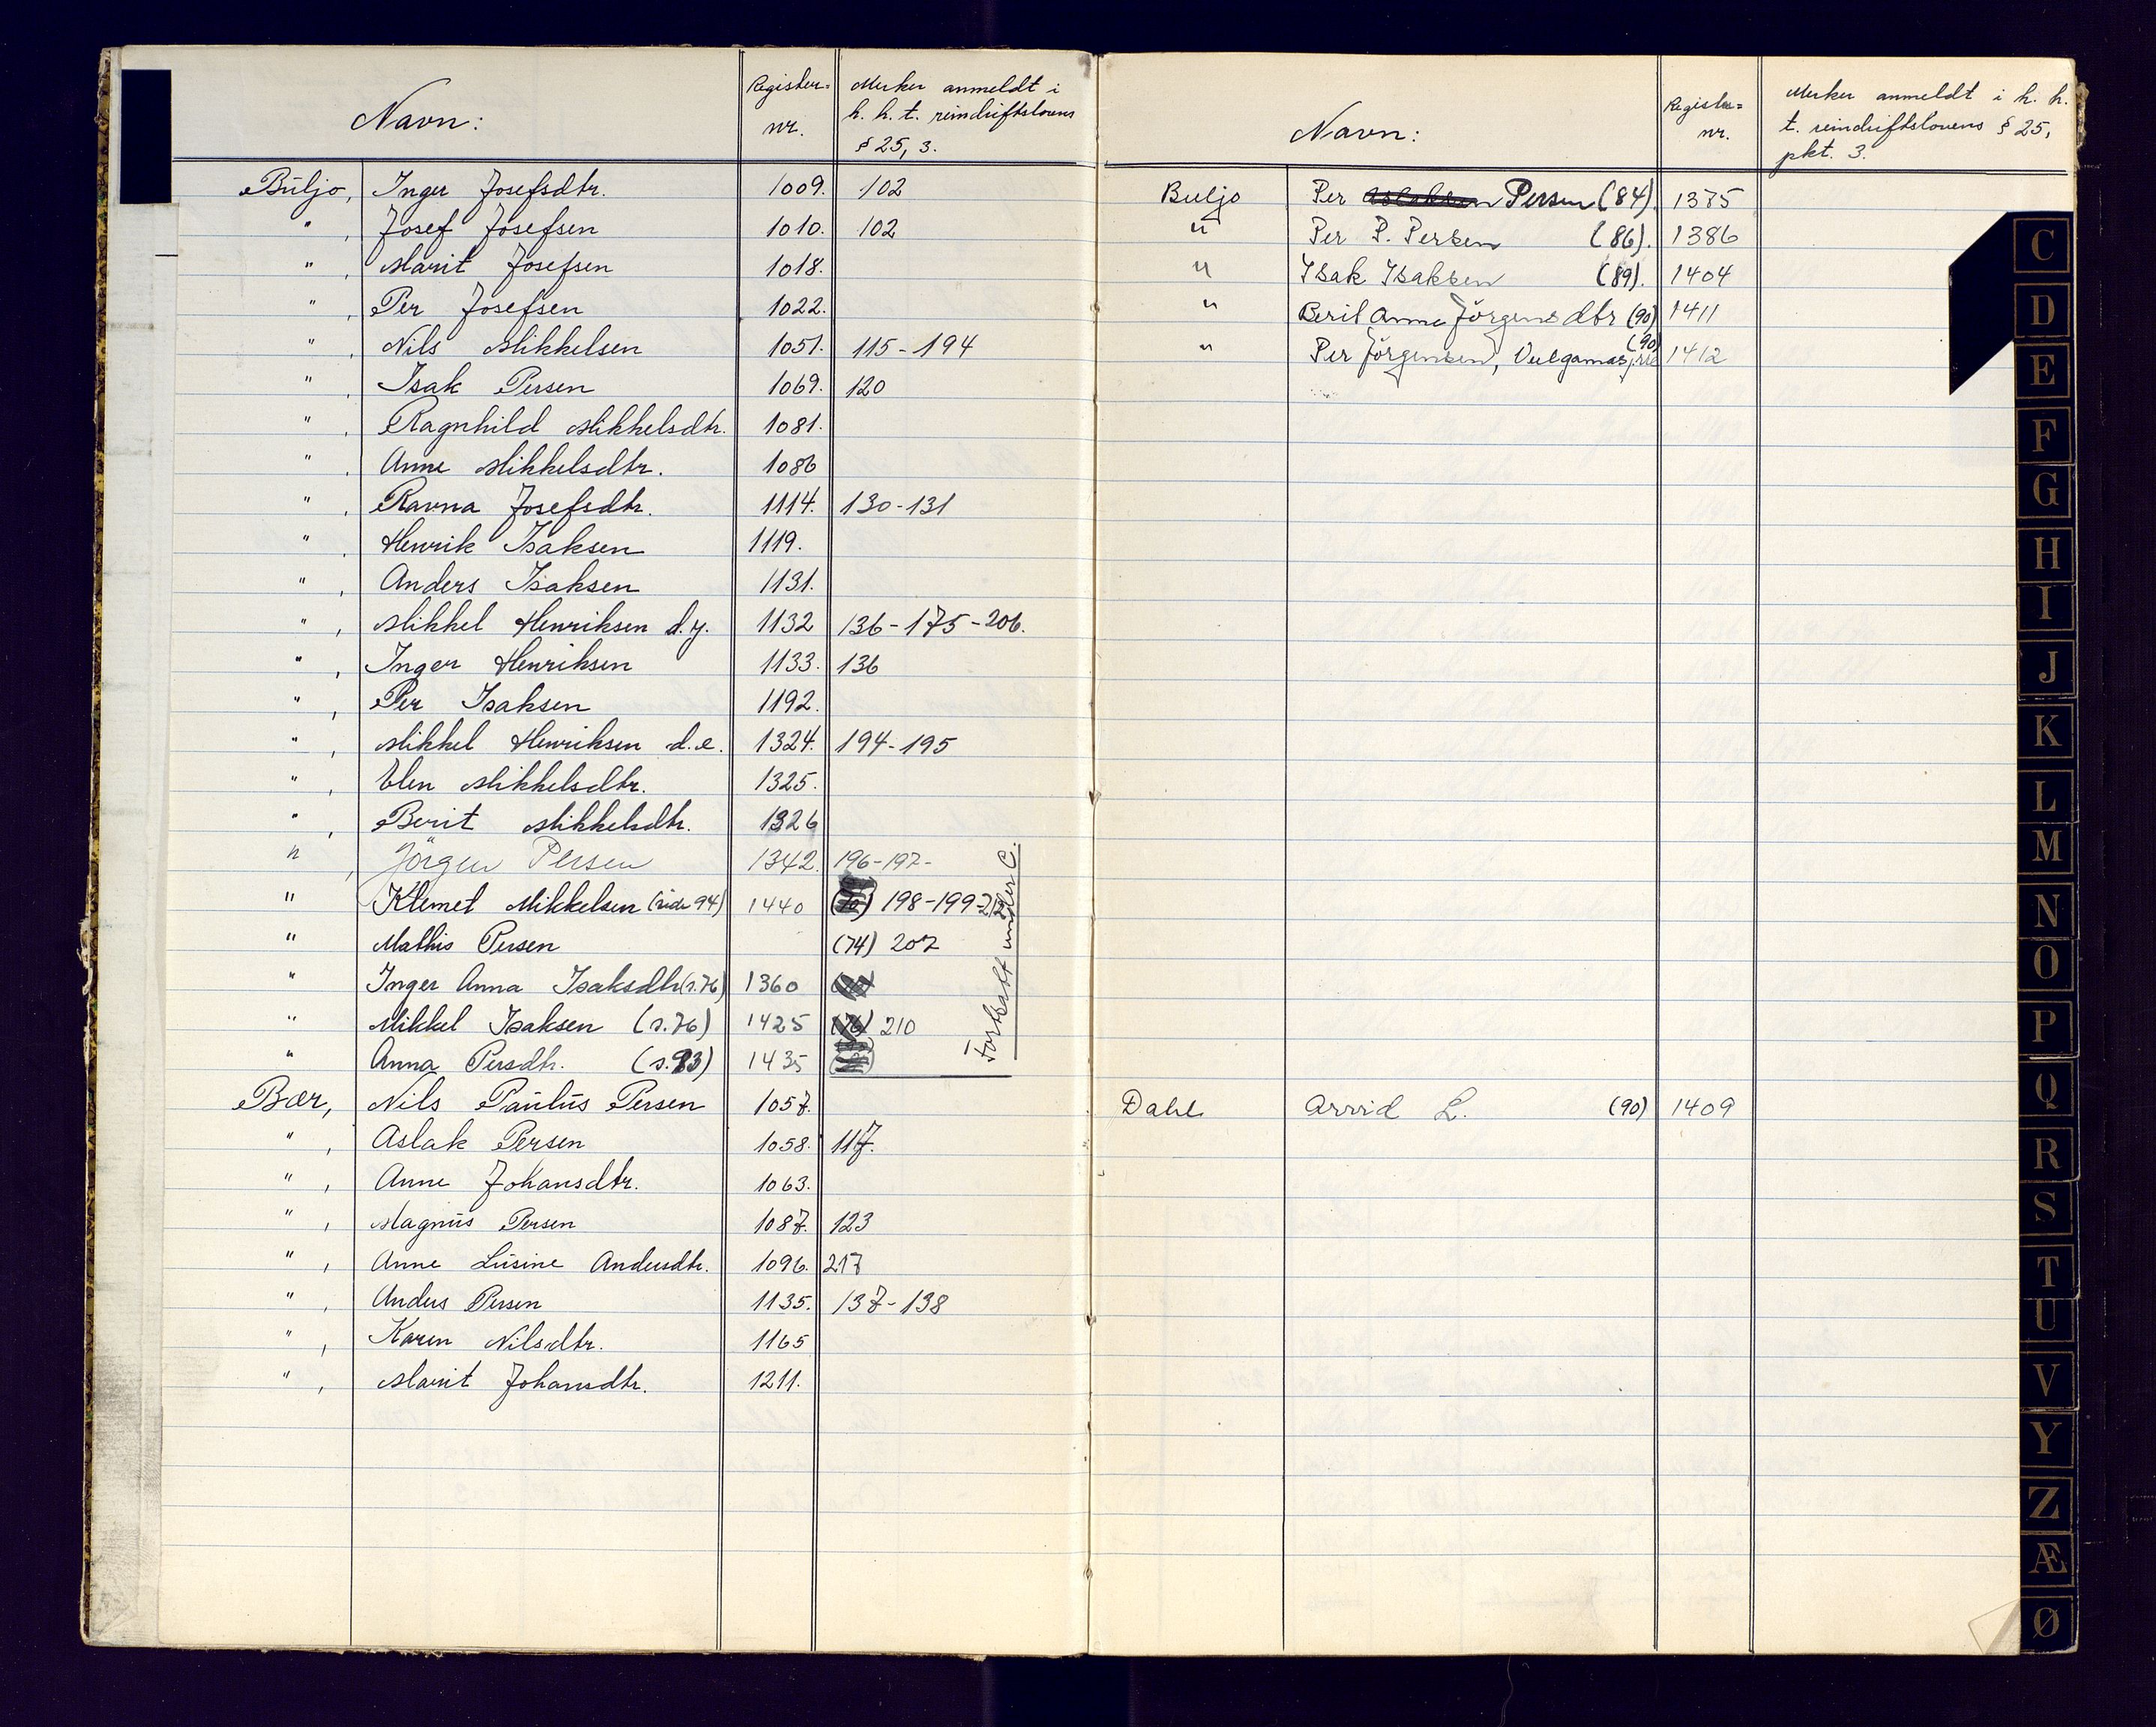 Navn: Register= nr. Merker anmeldt i h. h. t. reindriftslovens § 25, 3.
Buljo, Inger Josefsdtr. 1009. 102
" , Josef Josefsen 1010. 102
" , Marit Josefsen 1018.
" , Per Josefsen 1022.
" , Nils Mikkelsen 1051. 115-194
" , Isak Persen 1069. 120
" , Ragnhild Mikkelsdtr. 1081.
" , Anne Mikkelsdtr. 1086
" , Ravna Josefsdtr. 1114. 130-131
" , Henrik Isaksen 1119.
" , Anders Isaksen 1131.
" , Mikkel Henriksen d.y. 1132 136-175-206.
" , Inger Henriksen 1133. 136
" , Per Isaksen 1192.
" , Mikkel Henriksen d.e. 1324. 194-195
" , Elen Mikkelsdtr. 1325.
" , Berit Mikkelsdtr. 1326
" , Jörgen Persen 1342. 196-197-
" Klemet Mikkelsen (side 94) 1440 198-199-212
" Mathis Persen (74) 207
" Inger Anna Isaksdtr (s.76) 1360
" Mikkel Isaksen (s.76) 1425 (76) 210
" Anna Persdtr. (s.93) 1435
Fortsatt under C.
Bær, Nils Paulus Persen 1057.
" , Aslak Persen 1058. 117.
" , Anne Johansdtr. 1063.
" , Magnus Persen 1087. 123
" , Anne Lusine Andersdtr. 1096. 217
" , Anders Persen 1135. 137-138
" , Karen Nilsdtr. 1165
" , Marit Johansdtr. 1211.
Navn: Register= nr. Merker anmeldt i h. h. t. reindriftslovens § 25, pkt. 3.
Buljo Per Aslaksen Persen (84). 1375
" Per P. Persen (86). 1386
" Isak Isaksen (89). 1404
" Berit Anne Jörgensdtr (90) 1411
" Per Jörgensen, (90) 1412
Dahl Arvid L. (90) 1409
C
D
E
F
G
H
I
J
K
L
M
N
O
P
Q
R
S
T
U
V
Y
Z
Æ
Ø